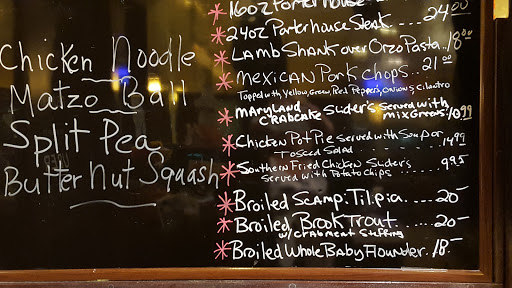 Chicken Noodle
Matzo Ball
Split Pea
Butter Nut Sqaash
* 16oz Porterhouse
* 24oz Porterhouse Steak .... 24.00
* Lamb Shank over Orzo Pasta. 18.00
* Mexican Pork Chops .. 21.00
Topped with Yellow, Green, Red Peppers, Onions & Cilantro
* Maryland Crabcake Slider's Served with mix Greens! 10.99
* Chicken Pot Pie Served with Soup or
Tossed Salad ........ 14.99
* Southern Fried Chicken Sliders
Served with Potato Chips ........ 9.95
* Broiled Scamp. Tilipia .... 20-
* Broiled Brook Trout. .... 20-
w/ Crabment Stuffing
* Broiled Whole Baby Flounder. 18.-